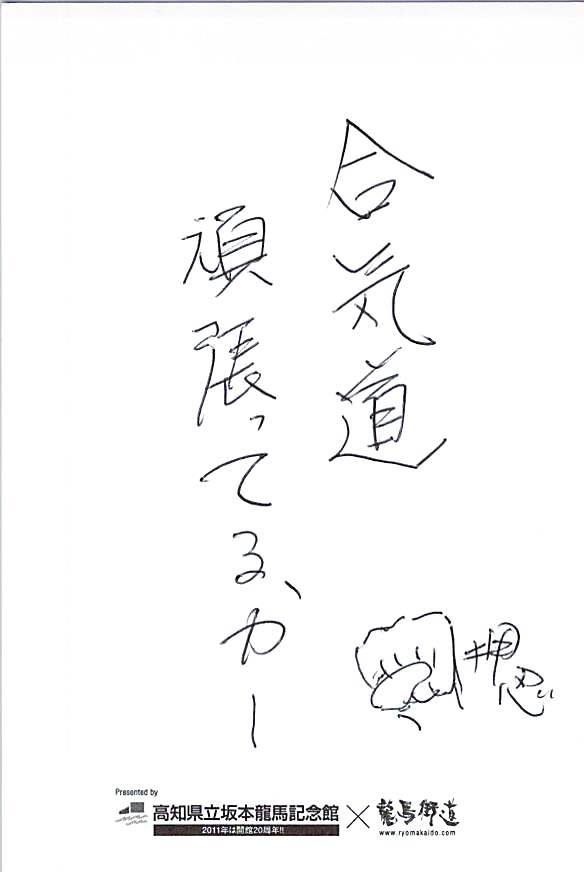 合気道
頑張ってる、カー
押忍
Presented by
高知県立坂本龍馬記念館
2011年は開館20周年!!
×
龍馬街道
www.ryomakaido.com